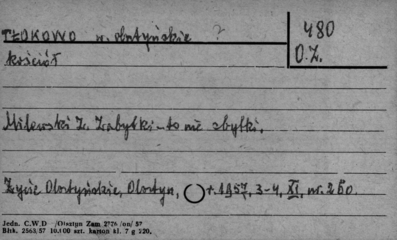 TŁOKOWO w. olsztyńskie ?
480
O.Z.
kościół
Milewski Z. Zabytki - to nie zbytki.
Życie Olsztyńskie, Olsztyn, r. 1957, 3-4, XI, nr. 260.
Jedn. C.W.D /Olsztyn Zam 2776 /on/ 57
Błtk. 2563/57 10.100 szt. karton kl. 7 g 220,